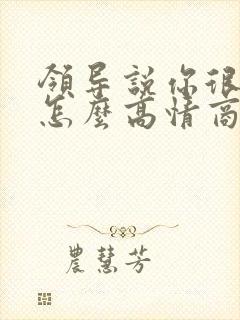 領导説你很
怎麼高情商
農慧芳